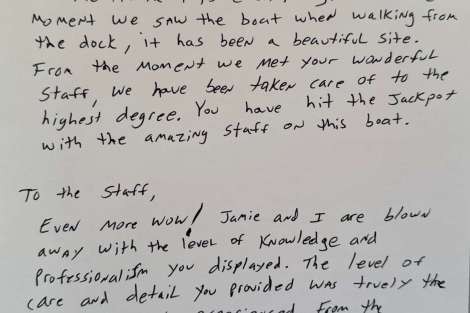 Moment we saw the boat when walking from
the dock, it has been a beautiful site.
From the Moment we met your wonderful
Staff, we have been taken care of to the
highest degree. You have hit the Jackpot
with the amazing staff on this boat.
To the Staff,
Even More Wow! Jamie and I are blown
away with the level of Knowledge and
Professionalism you displayed. The level of
care and detail you provided was truely the
experienced From the